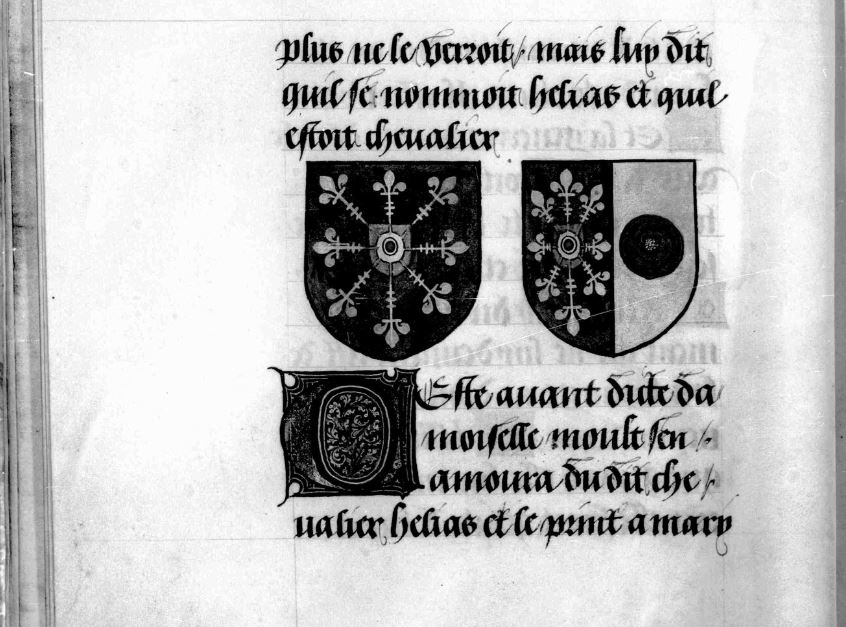 plus ne le verroit / mais luy dit
quil se nommoit helias et quil
estoit chevalier
Ceste avant dicte da
moiselle moult sen /
amoura du dit che /
ualier helias et le print a mary